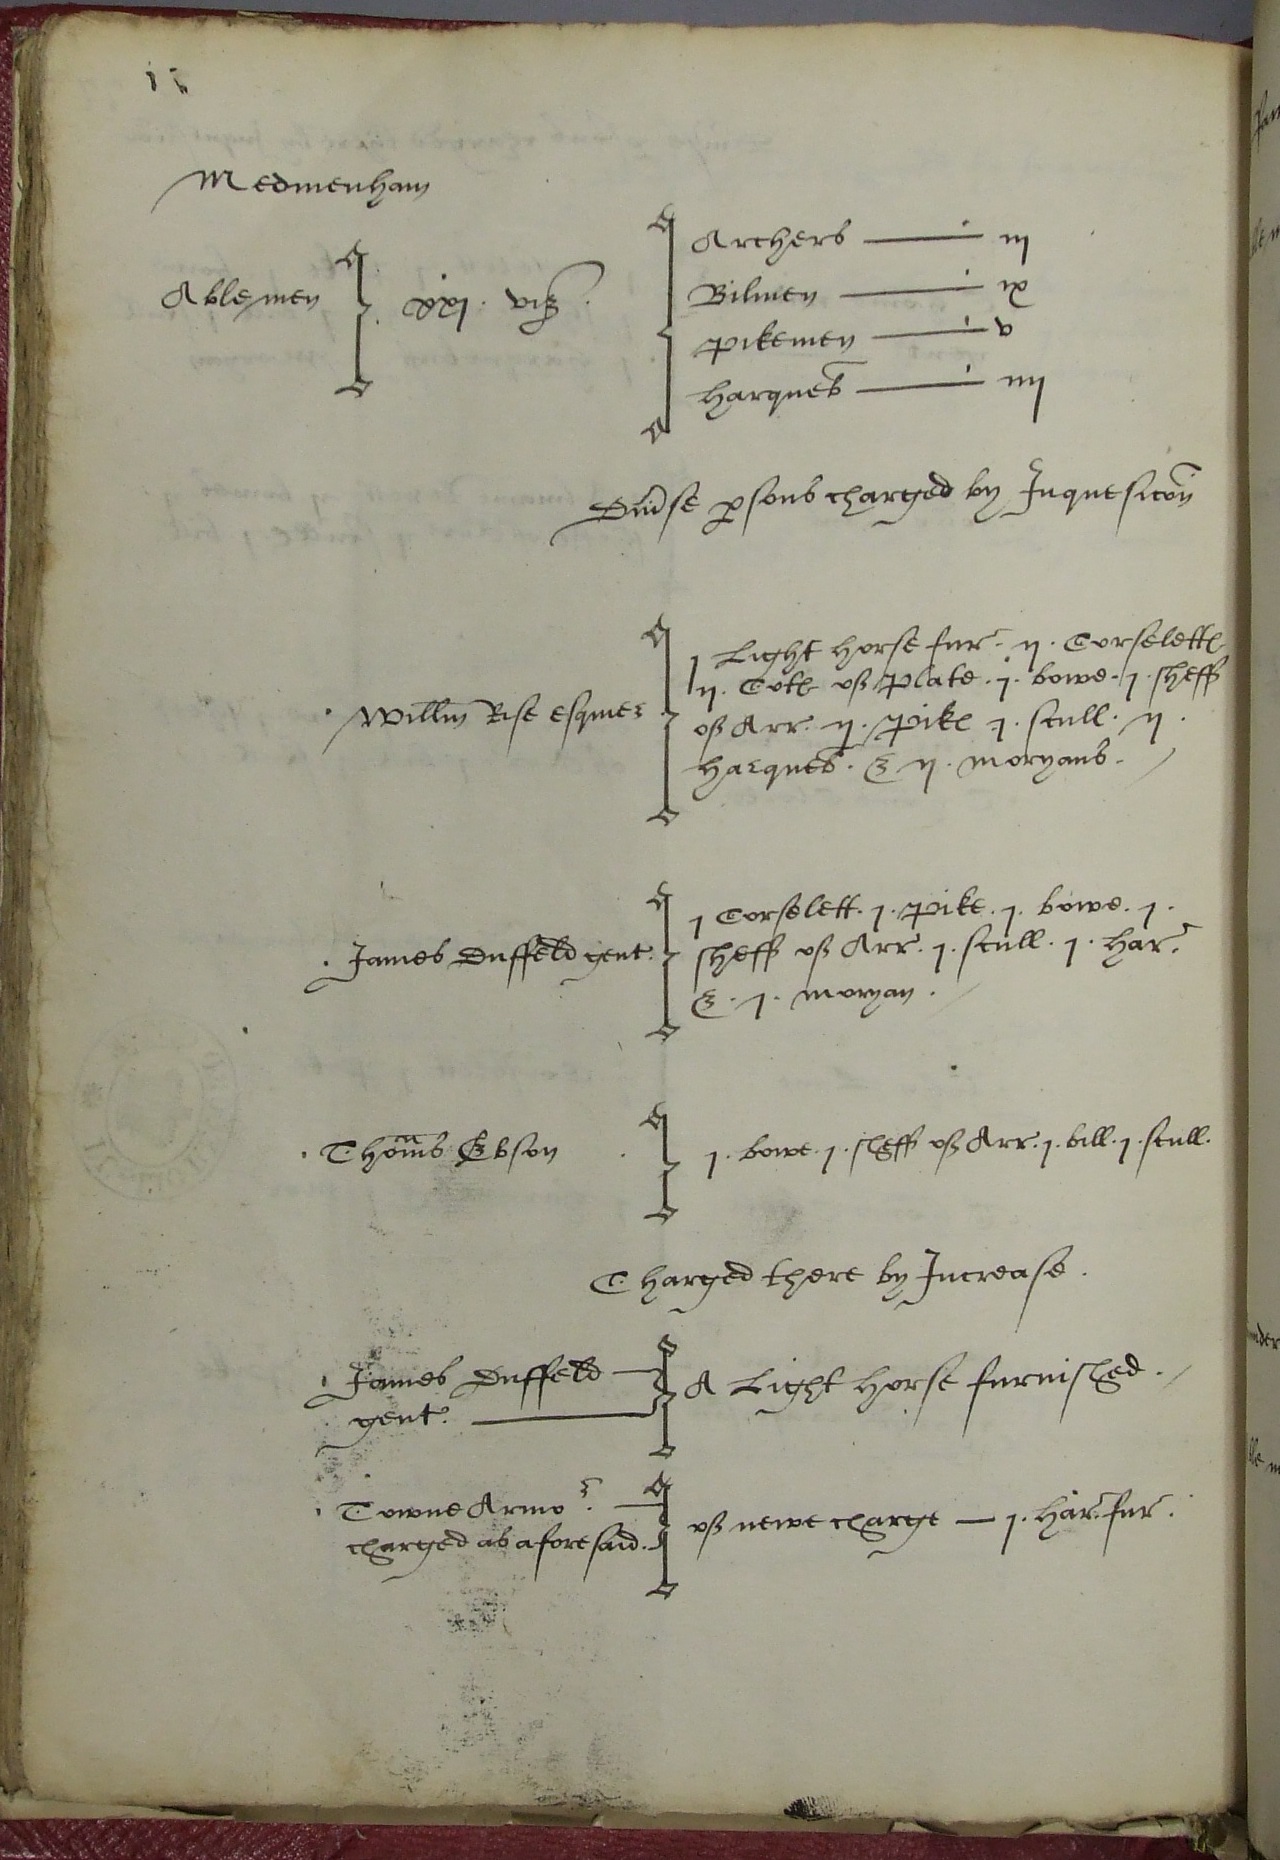 Medmenham
Ablemen xxi. viz.
Archers — iij
Bilmen — ix
Pikemen — v
Harqueb — iiij
Div'se p'sons charged by Inquesicon
Willm Rise esquier
j Light horse fur. ij. Corselett
ij. Cotes of Plate. j. bowe. j. sheff
of Arr. ij. Pik j. scull. ij.
Harqueb. & ij. moryans.
James Duffeld gent.
j Corselett. j. Pike. j. bowe. j.
sheff of Arr. j. scull. j. Har.
&. j. moryan.
Thoms
j. bowe. j. sheff of Arr. j. bill. j. scull.
Charged there by Increase.
James Duffeld
gent.
A Light Horse furnished.
Towne Armor.
charged as aforesaid.
of newe charge — j. har. fur.